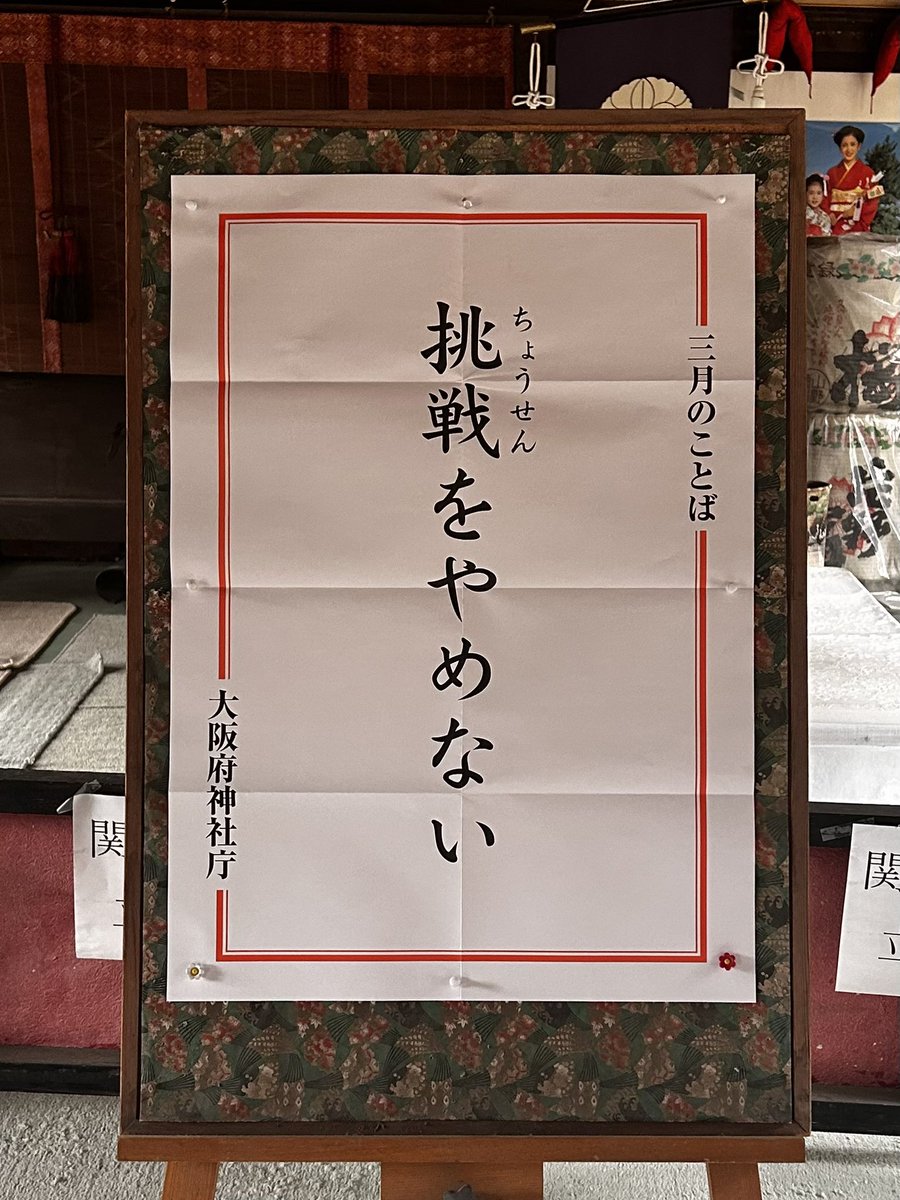 三月のことば
挑戦をやめない
ちょうせん
大阪府神社庁
関
関